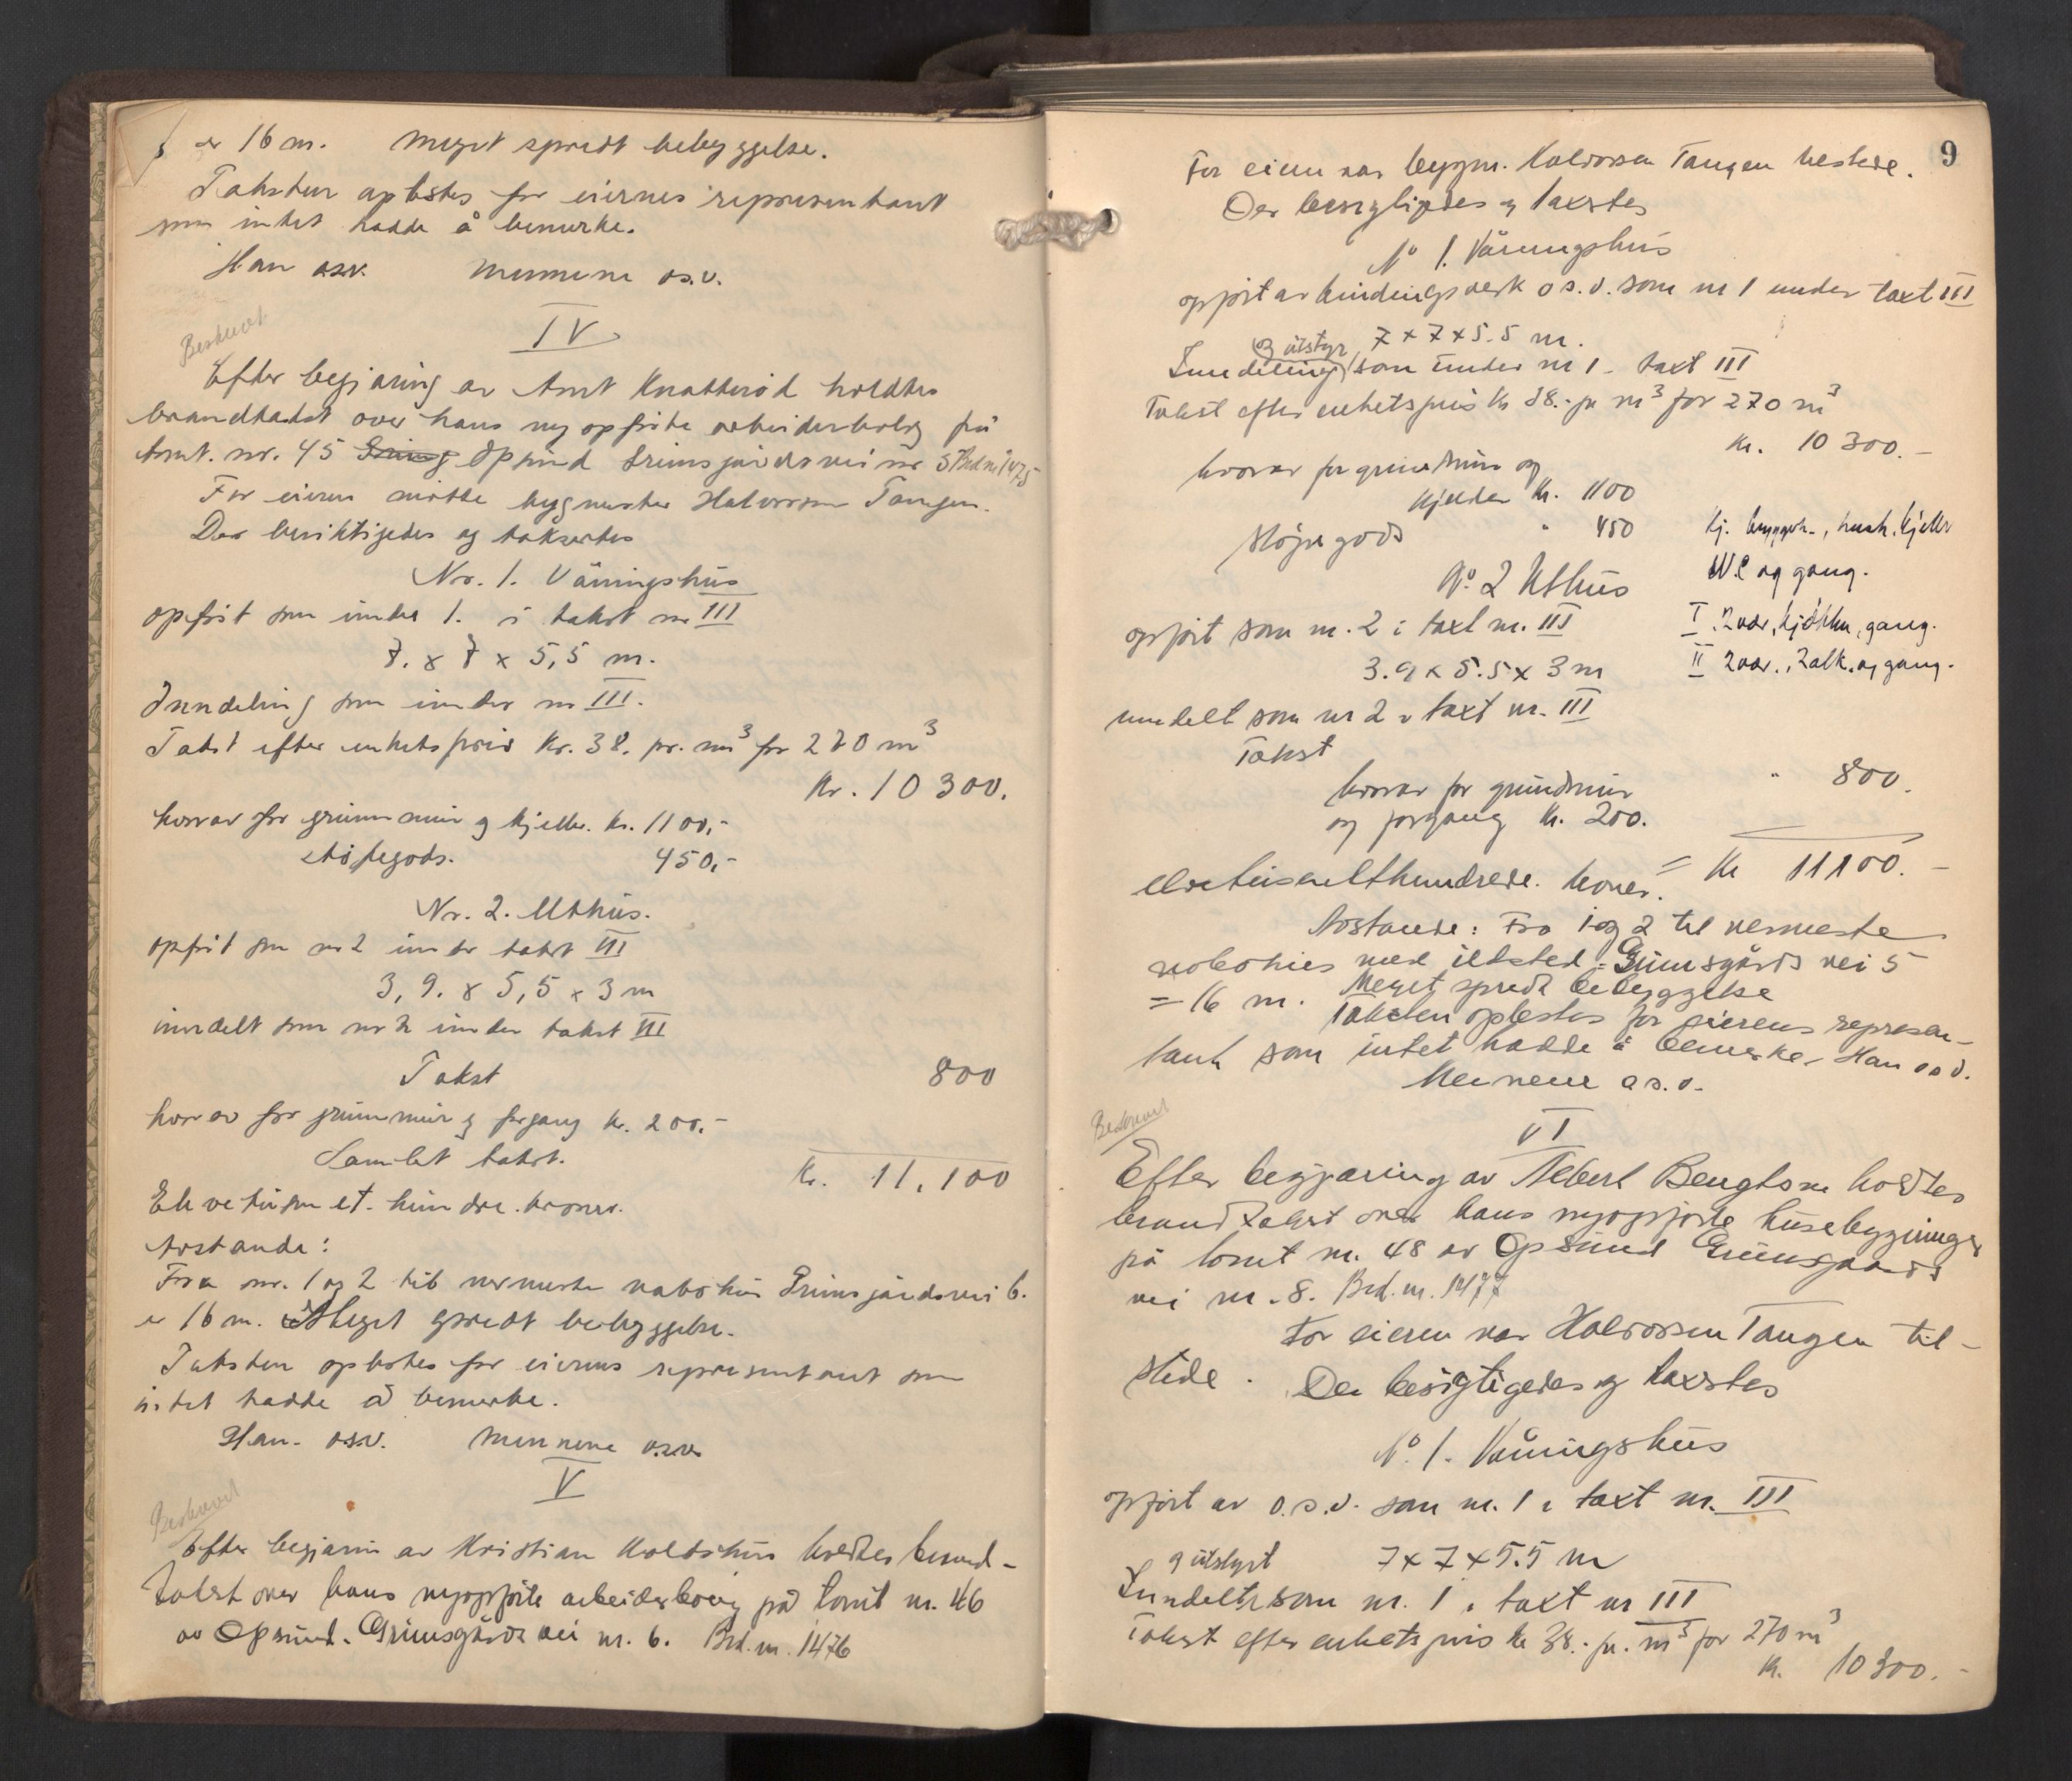 er 16 m. Meget spredt bebyggelse.
Taksten oplestes for eiernes representant
som intet hadde å bemerke.
Han osv. Mennene os.v.
Beskrevet
IV
Efter begjæring av Arnt Knatterød holdtes
brandtakst over hans nyopførte arbeiderbolig på
tomt. nr. 45 Opsund Grimsgårdsvei nr 5 Brd nr 1475
For eieren møtte bygmester Halvorsen Tangen.
Der besiktigedes og taksertes
Nr. 1. Våningshus
opført som under 1. i takst nr III
7. x 7 x 5,5 m.
Inndeling som under nr III.
Takst efter enhetspris Kr. 38. pr. m3 for 270 m3
Kr. 10 300.
hvorav for grunnmur og kjeller. kr. 1100,-
støpegods. 450,-
Nr. 2. Uthus.
opført som nr 2 under takst III
3,9. x 5,5 x 3 m
inndelt som nr 2 under takst III
Takst 800
hvorav for grunnmur og forgang kr. 200.-
Samlet takst.
Kr. 11.100
Elvetusen et. hundre. kroner.
Avstande:
Fra nr. 1 og 2 til nermeste nabohus Grimsgårdsvei 6.
er 16 m. Meget spredt bebyggelse.
Taksten oplestes for eierens representant som
intet hadde å bemerke.
Han. osv. Mennene osv.
V
Beskrevet
Efter begjæring av Kristian Holtshus holdtes brand-
takst over hans nyopførte arbeiderbolig på tomt nr. 46
av Opsund. Grimsgårds vei nr. 6. Brd. nr. 1476
9
For eieren var byggm. Halvorsen Tangen tilstede.
Der besigtigedes og taxertes
No 1. Våningshus
opført av bindingsverk o.s.v. som nr 1 under taxt III
7 x 7 x 5.5 m.
og utstyr
Inndeling som under nr 1 - taxt III
Takst efter enhetspris kr 38.- pr m3 for 270 m3
kr. 10 300.-
hvorav for grundmur og
kjelder kr. 1100
støpegods " 450
Kj. bryggerh., hush. kjeller
W.C og gang.
No 2 Uthus
I. 2 vær., kjøkken, gang.
opført som nr. 2 i taxt nr. III
II 2 vær., 2 alk. og gang.
3.9 x 5.5 x 3 m
inndelt som nr 2 i taxt nr. III
Takst
" 800.
hvorav for grundmur
og forgang kr. 200.
Elvetusenetthundrede. kroner. = Kr 11100.-
Avstande: Fra 1 og 2 til nermeste
nabohus med ildsted: Grimsgårds vei 5
= 16 m. Meget spredt bebyggelse
Taksten oplestes for eierens represen-
tant som intet hadde å bemerke - Han osv.
Mennene o.s.v.
Beskrevet
VI
Efter begjæring av Albert Bengtson holdtes
brandtakst over hans nyopførte husebygninger
på tomt nr. 48 av Opsund Grimsgaards
vei nr. 8. Brd. nr. 1477
For eieren var Halvorsen Tangen til-
stede. Der besigtigedes og taxertes
No. 1. Våningshus
opført av o.s.v. som nr. 1 i taxt nr. III
7 x 7 x 5.5 m
og utstyrt
Inndelt som nr. 1 i taxt nr III
Takst efter enhetspris kr 38.- pr. m3 for 270 m3
kr. 10 300.-